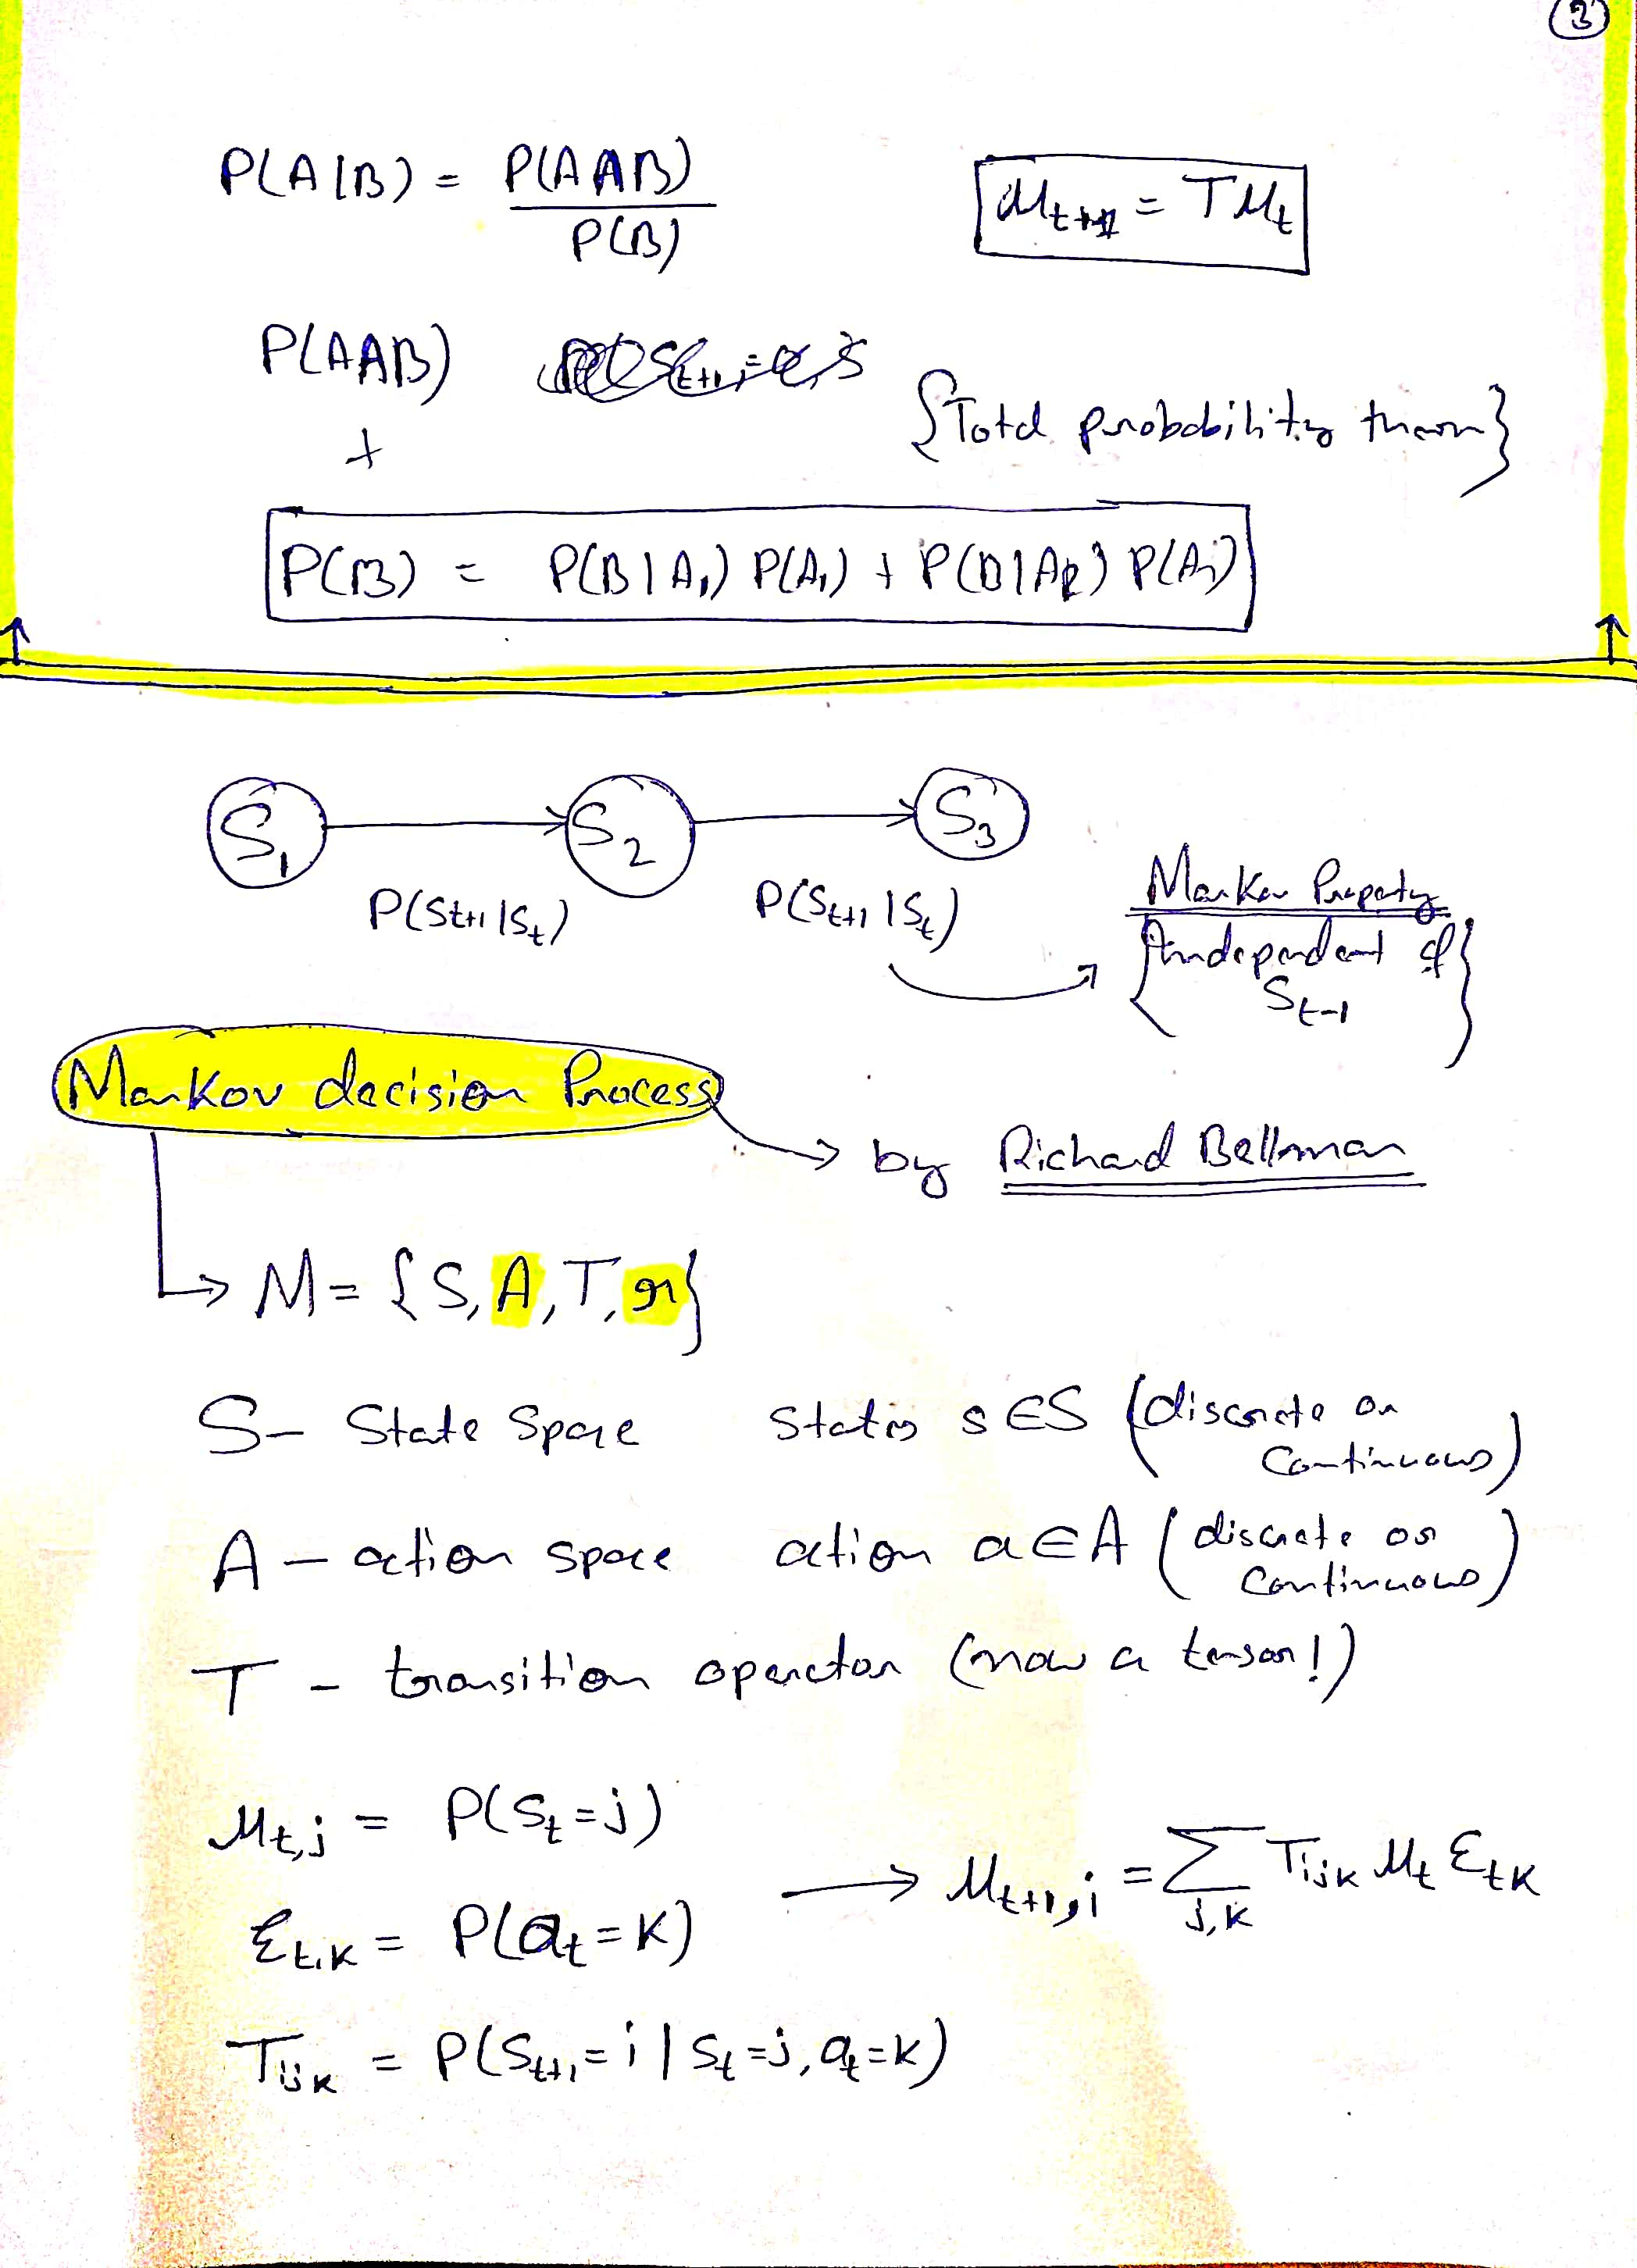 3
P(A|B) = P(A∩B) / P(B)
μ_{t+1} = T μ_t
P(A∩B)
{Total probability
+
P(B) = P(B|A₁) P(A₁) + P(B|A₂) P(A₂)
S₁ → S₂ → S₃
P(S_{t+1}|S_t) P(S_{t+1}|S_t)
Markov Property
{Independent of
S_{t-1}}
Markov decision Process
by Richard Bellman
M = {S, A, T, r}
S – State Space States s ∈ S (discrete or
continuous)
A – action space action a ∈ A (discrete or
continuous)
T – transition operator (now a tensor!)
μ_{t,j} = P(S_t = j)
μ_{t+1,i} = Σ_{j,k} T_{ijk} μ_t ξ_{tk}
ξ_{t,k} = P(a_t = k)
T_{ijk} = P(S_{t+1} = i | S_t = j, a_t = k)